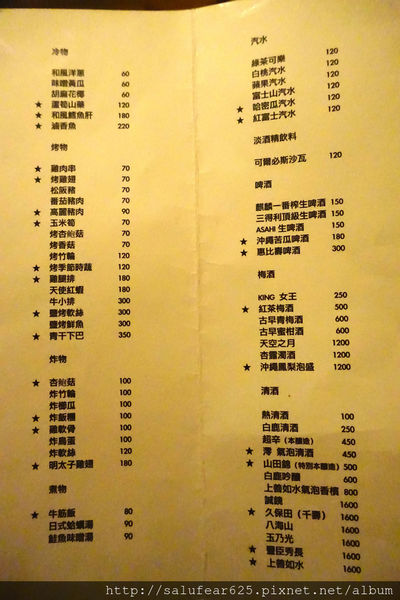 冷物
和風洋蔥 60
味噌黃瓜 60
胡麻花椰 60
★ 蘆筍山藥 120
★ 和風鱈魚肝 180
★ 滷香魚 220
烤物
★ 雞肉串 70
★ 烤雞翅 70
松阪豬 70
番茄豬肉 70
★ 高麗豬肉 90
★ 玉米筍 70
烤杏鮑菇 70
烤香菇 70
烤竹輪 120
★ 烤季節時蔬 120
★ 雞腿排 180
天使紅蝦 180
牛小排 300
★ 鹽烤軟絲 300
鹽烤鮮魚 300
★ 青干下巴 350
炸物
★ 杏鮑菇 100
炸竹輪 100
炸櫛瓜 100
★ 炸飯糰 100
★ 雞軟骨 100
炸鳥蛋 100
炸軟絲 120
★ 明太子雞翅 180
煮物
★ 牛筋飯 80
日式蛤蠣湯 90
鮭魚味噌湯 90
汽水
綠茶可樂 120
白桃汽水 120
蘋果汽水 120
富士山汽水 120
★ 哈密瓜汽水 120
★ 紅富士汽水 120
淡酒精飲料
可爾必斯沙瓦 120
啤酒
麒麟一番榨生啤酒 150
三得利頂級生啤酒 150
ASAHI 生啤酒 150
★ 沖繩苦瓜啤酒 180
★ 惠比壽啤酒 300
梅酒
KING 女王 250
★ 紅茶梅酒 500
古早青梅酒 600
古早蜜柑酒 600
天空之月 1200
杏露濁酒 1200
★ 沖繩鳳梨泡盛 1200
清酒
熱清酒 100
白鹿清酒 250
超辛(本釀造) 450
★ 澪 氣泡清酒 450
★ 山田錦(特別本釀造) 500
白鹿吟釀 600
上善如水氣泡香檳 800
誠鏡 1600
★ 久保田(千壽) 1600
八海山 1600
玉乃光 1600
★ 豐臣秀長 1600
★ 上善如水 1600
http://salufear625.pixnet.net/album